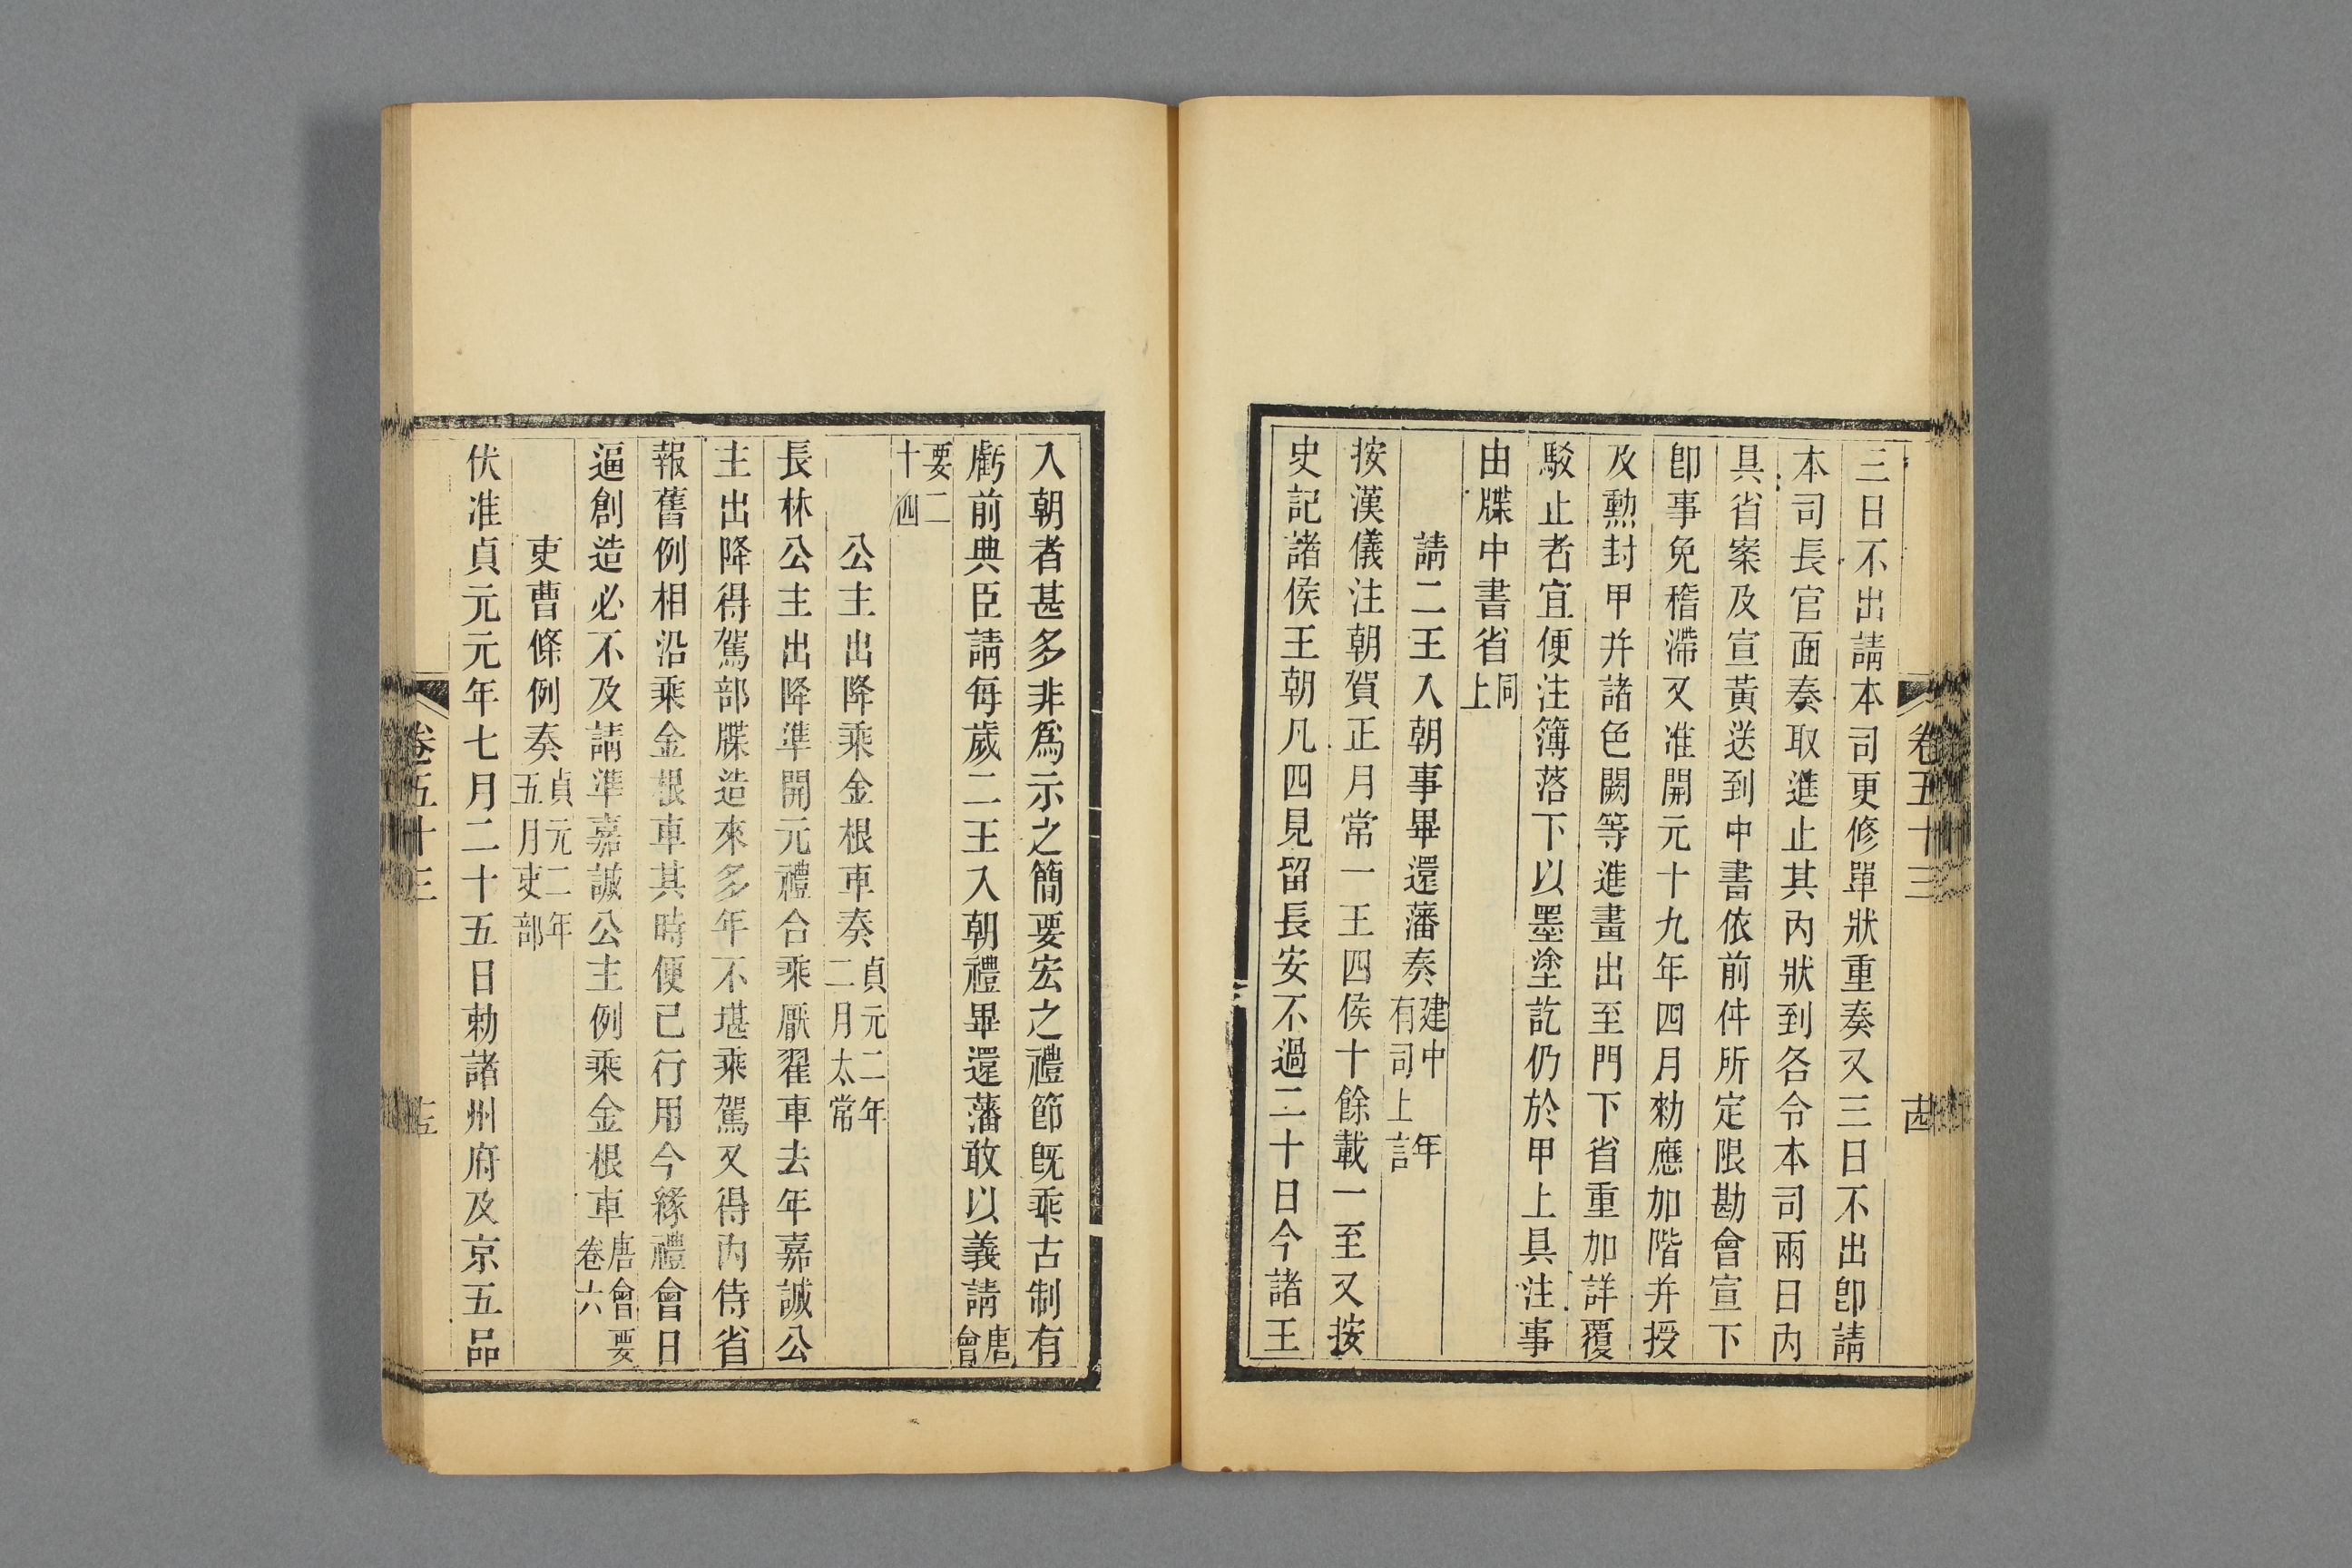 卷五十三
十四
三日不出請本司更修單狀重奏又三日不出卽請
本司長官面奏取進止其內狀到各令本司兩日內
具省案及宣黃送到中書依前件所定限勘會宣下
卽事免稽滯又准開元十九年四月勑應加階幷授
及勳封甲幷諸色闕等進畫出至門下省重加詳覆
駮止者宜便注簿落下以墨塗訖仍於甲上具注事
由牒中書省同上
請二王入朝事畢還藩奏建中 年有司上言
按漢儀注朝賀正月常一王四侯十餘載一至又按
史記諸侯王朝凡四見留長安不過二十日今諸王
入朝者甚多非爲示之簡要宏之禮節旣乖古制有
虧前典臣請每歲二王入朝禮畢還藩敢以義請唐會
要二十四
公主出降乘金根車奏貞元二年二月太常
長林公主出降準開元禮合乘厭翟車去年嘉誠公
主出降得駕部牒造來多年不堪乘駕又得內侍省
報舊例相沿乘金根車其時便已行用今緣禮會日
逼創造必不及請準嘉誠公主例乘金根車唐會要卷六
吏曹條例奏貞元二年五月吏部
伏准貞元元年七月二十五日勑諸州府及京五品
卷五十三
十五